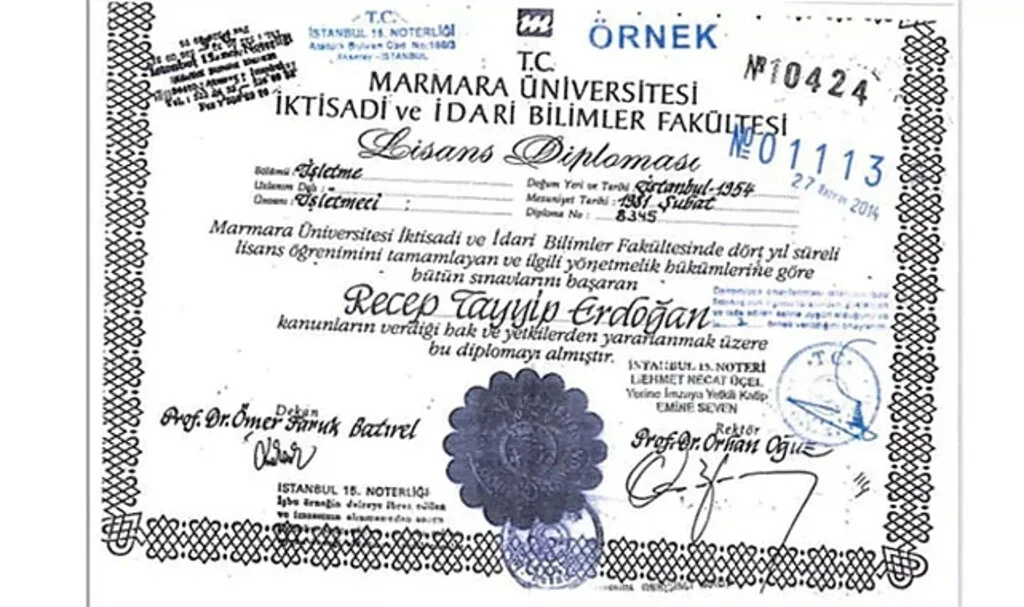 T.C.
İSTANBUL 15. NOTERLİĞİ
Atatürk Bulvarı Cad. No:160/3
Aksaray - İSTANBUL
ÖRNEK
Nº10424
T.C.
MARMARA ÜNİVERSİTESİ
İKTİSADİ ve İDARİ BİLİMLER FAKÜLTESİ
Nº 01113
27 2014
Lisans Diploması
Bölümü : İşletme
Uzlanım Dalı : -
Ünvanı : İşletmeci :
Doğum Yeri ve Tarihi : İstanbul-1954
Mezuniyet Tarihi : 1981 Şubat
Diploma No : 8345
Marmara Üniversitesi İktisadi ve İdari Bilimler Fakültesinde dört yıl süreli
lisans öğrenimini tamamlayan ve ilgili yönetmelik hükümlerine göre
bütün sınavlarını başaran
Recep Tayyip Erdoğan
kanunların verdiği hak ve yetkilerden yararlanmak üzere
bu diplomayı almıştır.
İSTANBUL 15. NOTERİ
MEHMET NECAT ÜÇEL
Yerine İmzaya Yetkili Katip
EMİNE SEVEN
T.C.
Dekan
Prof. Dr. Ömer Faruk Batırel
Rektör
Prof. Dr. Orhan Oğuz
İSTANBUL 15. NOTERLİĞİ
İşbu örneğin daireye ibraz edilen